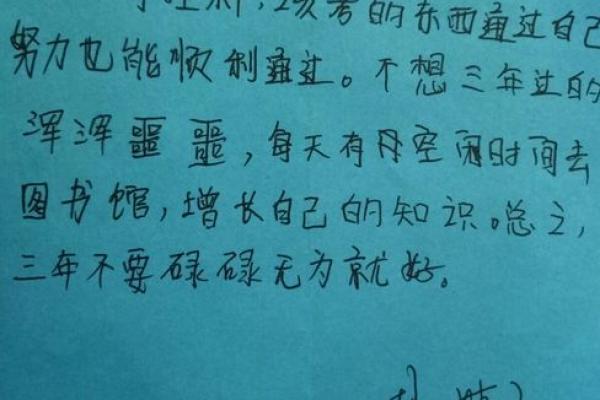 该考的东西通过自己
努力也能顺利通过。不想三年过的
浑浑噩噩,每天有用空闲时间去
图书馆,增长自己的知识。总之,
三年不要碌碌无为就好。